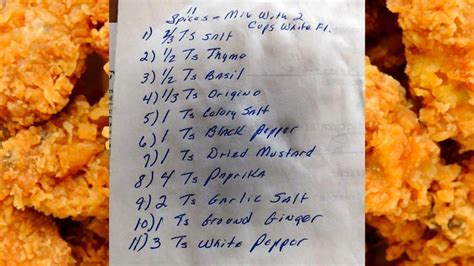 11
Spices - Mix With 2
Cups White Fl.
1) 2/3 Ts Salt
2) 1/2 Ts Thyme
3) 1/2 Ts Basil
4) 1/3 Ts Origino
5) 1 Ts Celery Salt
6) 1 Ts Black Pepper
7) 1 Ts Dried Mustard
8) 4 Ts Paprika
9) 2 Ts Garlic Salt
10) 1 Ts Ground Ginger
11) 3 Ts White Pepper